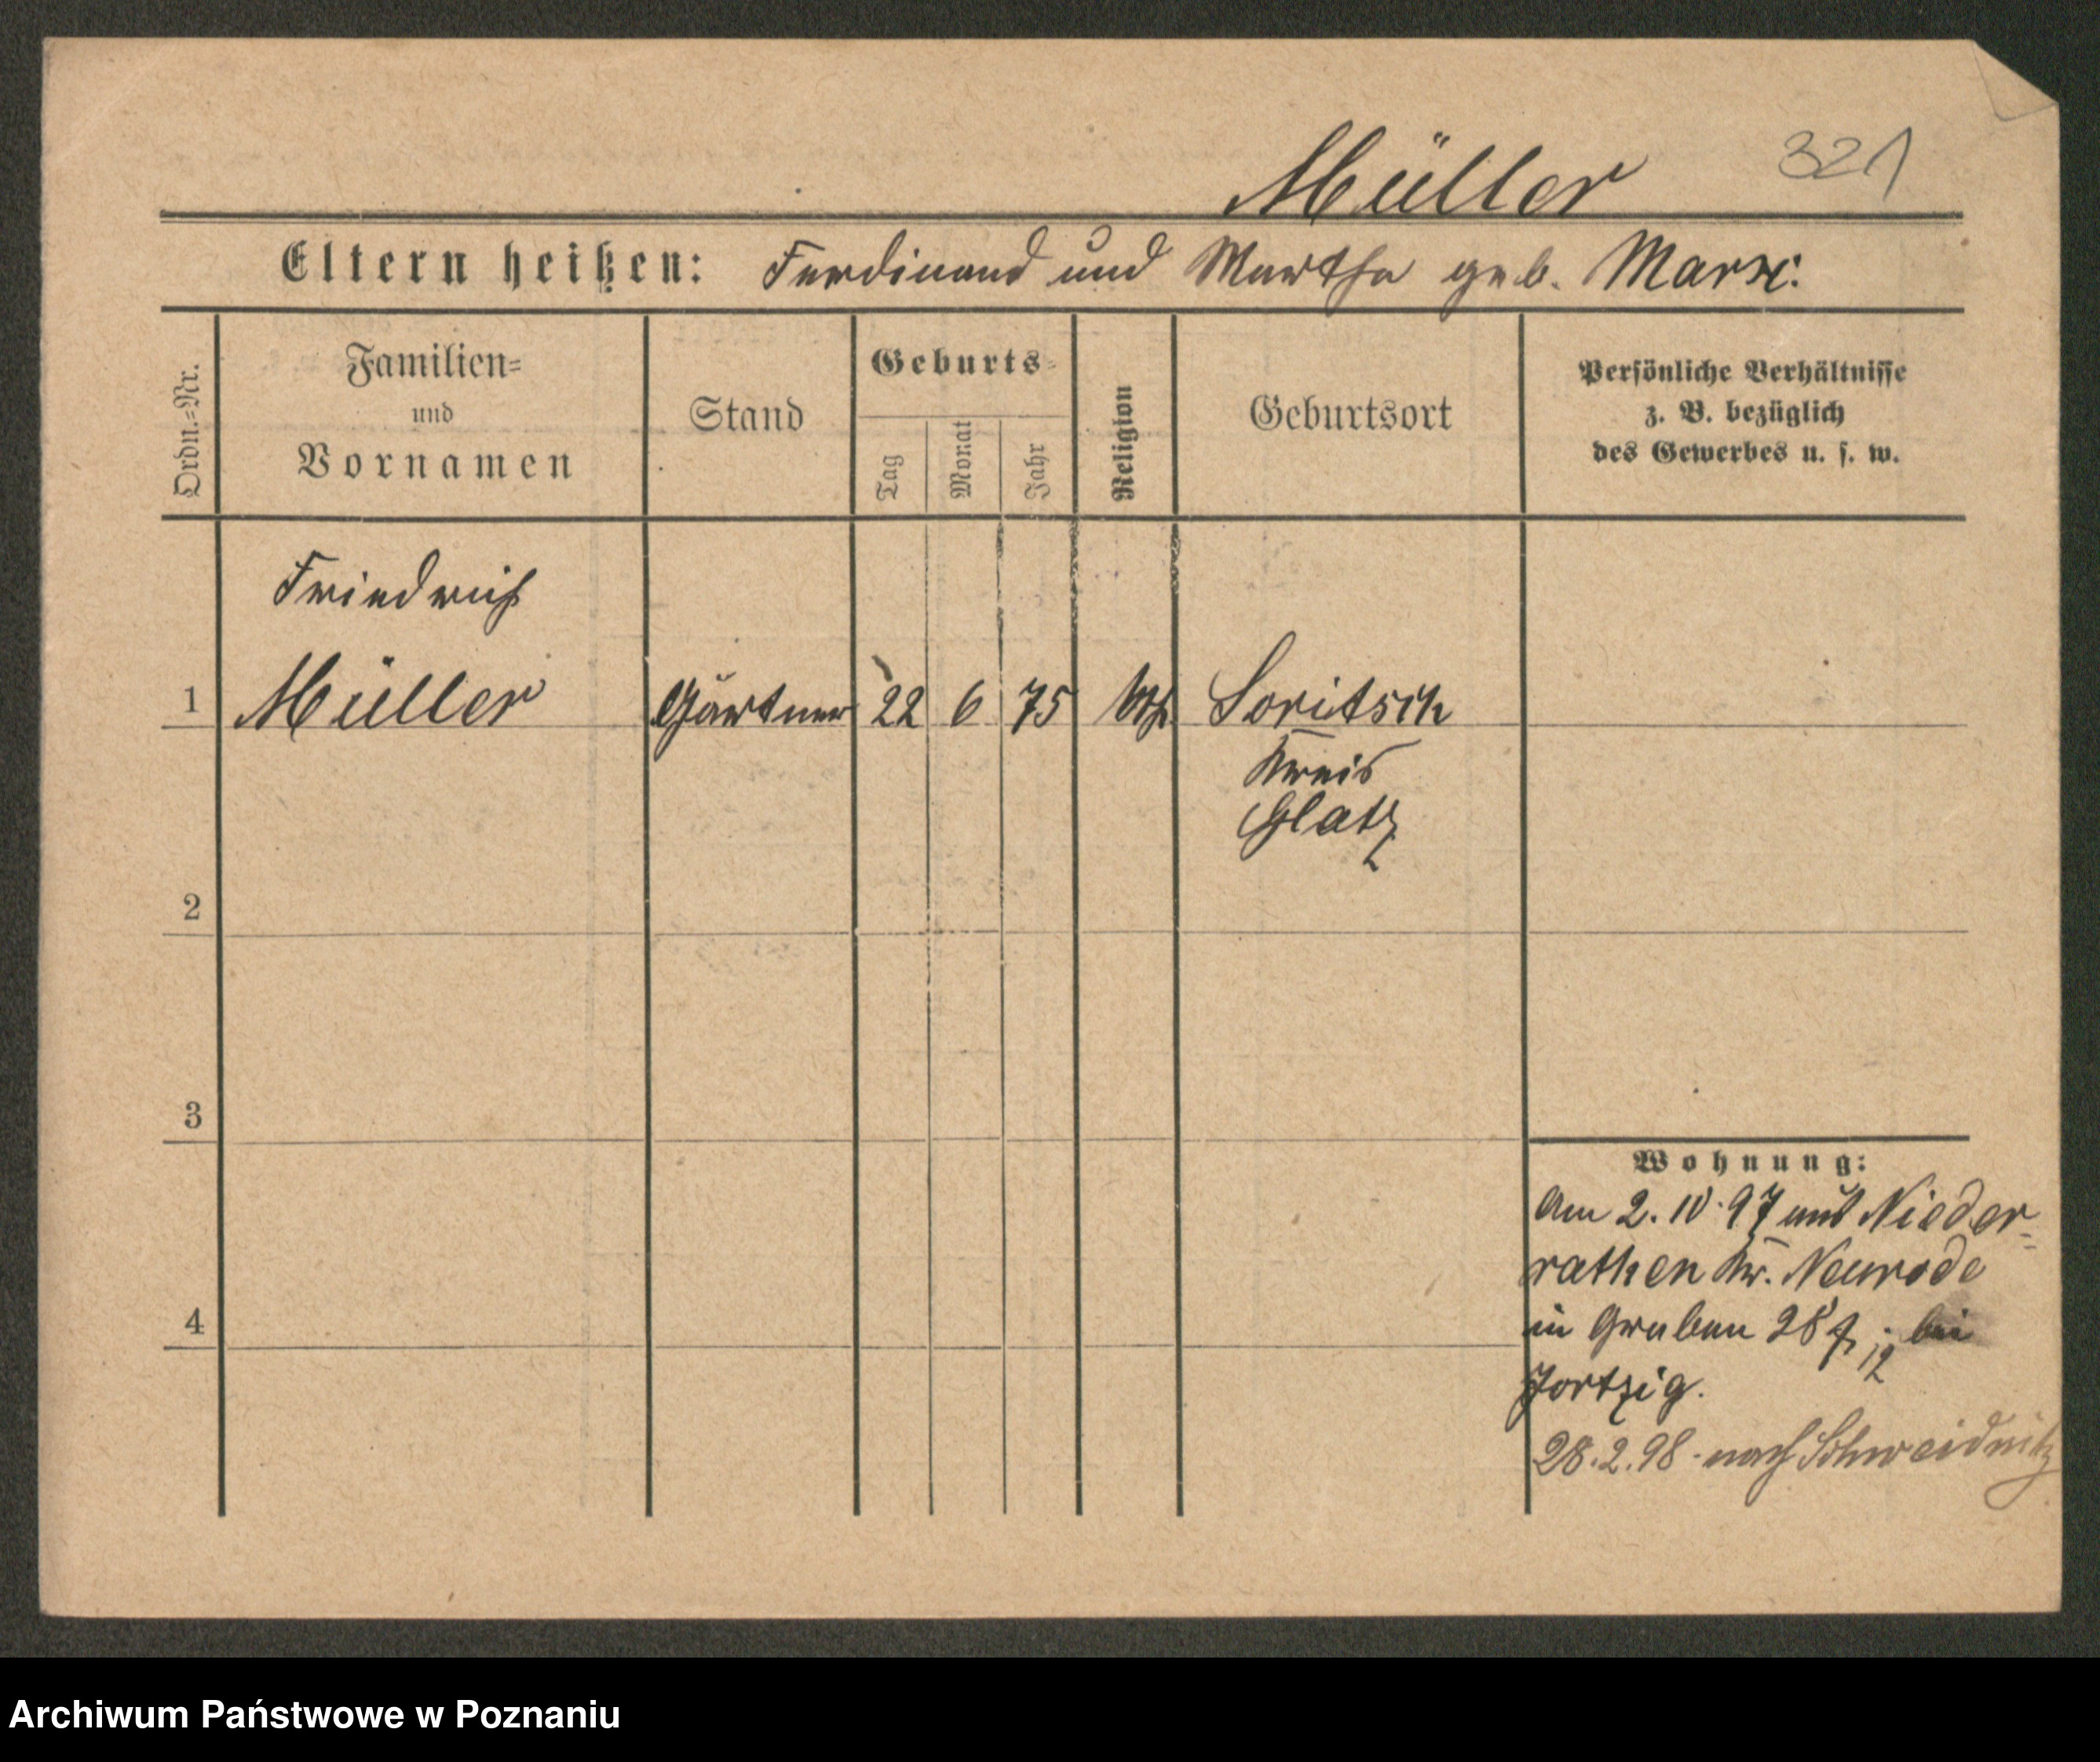 Müller 321
Eltern heißen: Ferdinand und Martha geb. Marx.
Ordn.=Nr.
Familien=
und
Vornamen
Stand
Geburts=
Tag
Monat
Jahr
Religion
Geburtsort
Persönliche Verhältnisse
z. B. bezüglich
des Gewerbes u. s. w.
Friedrich
1 Müller Gärtner 22 6 75 Soritsch
Kreis
Glatz
2
3
4
Wohnung:
Am 2. 10. 97 aus Nieder-
rathen Kr. Neurode
in Graben 28 bei
Jortzig.
28.2.98. nach Schweidnitz
Archiwum Państwowe w Poznaniu